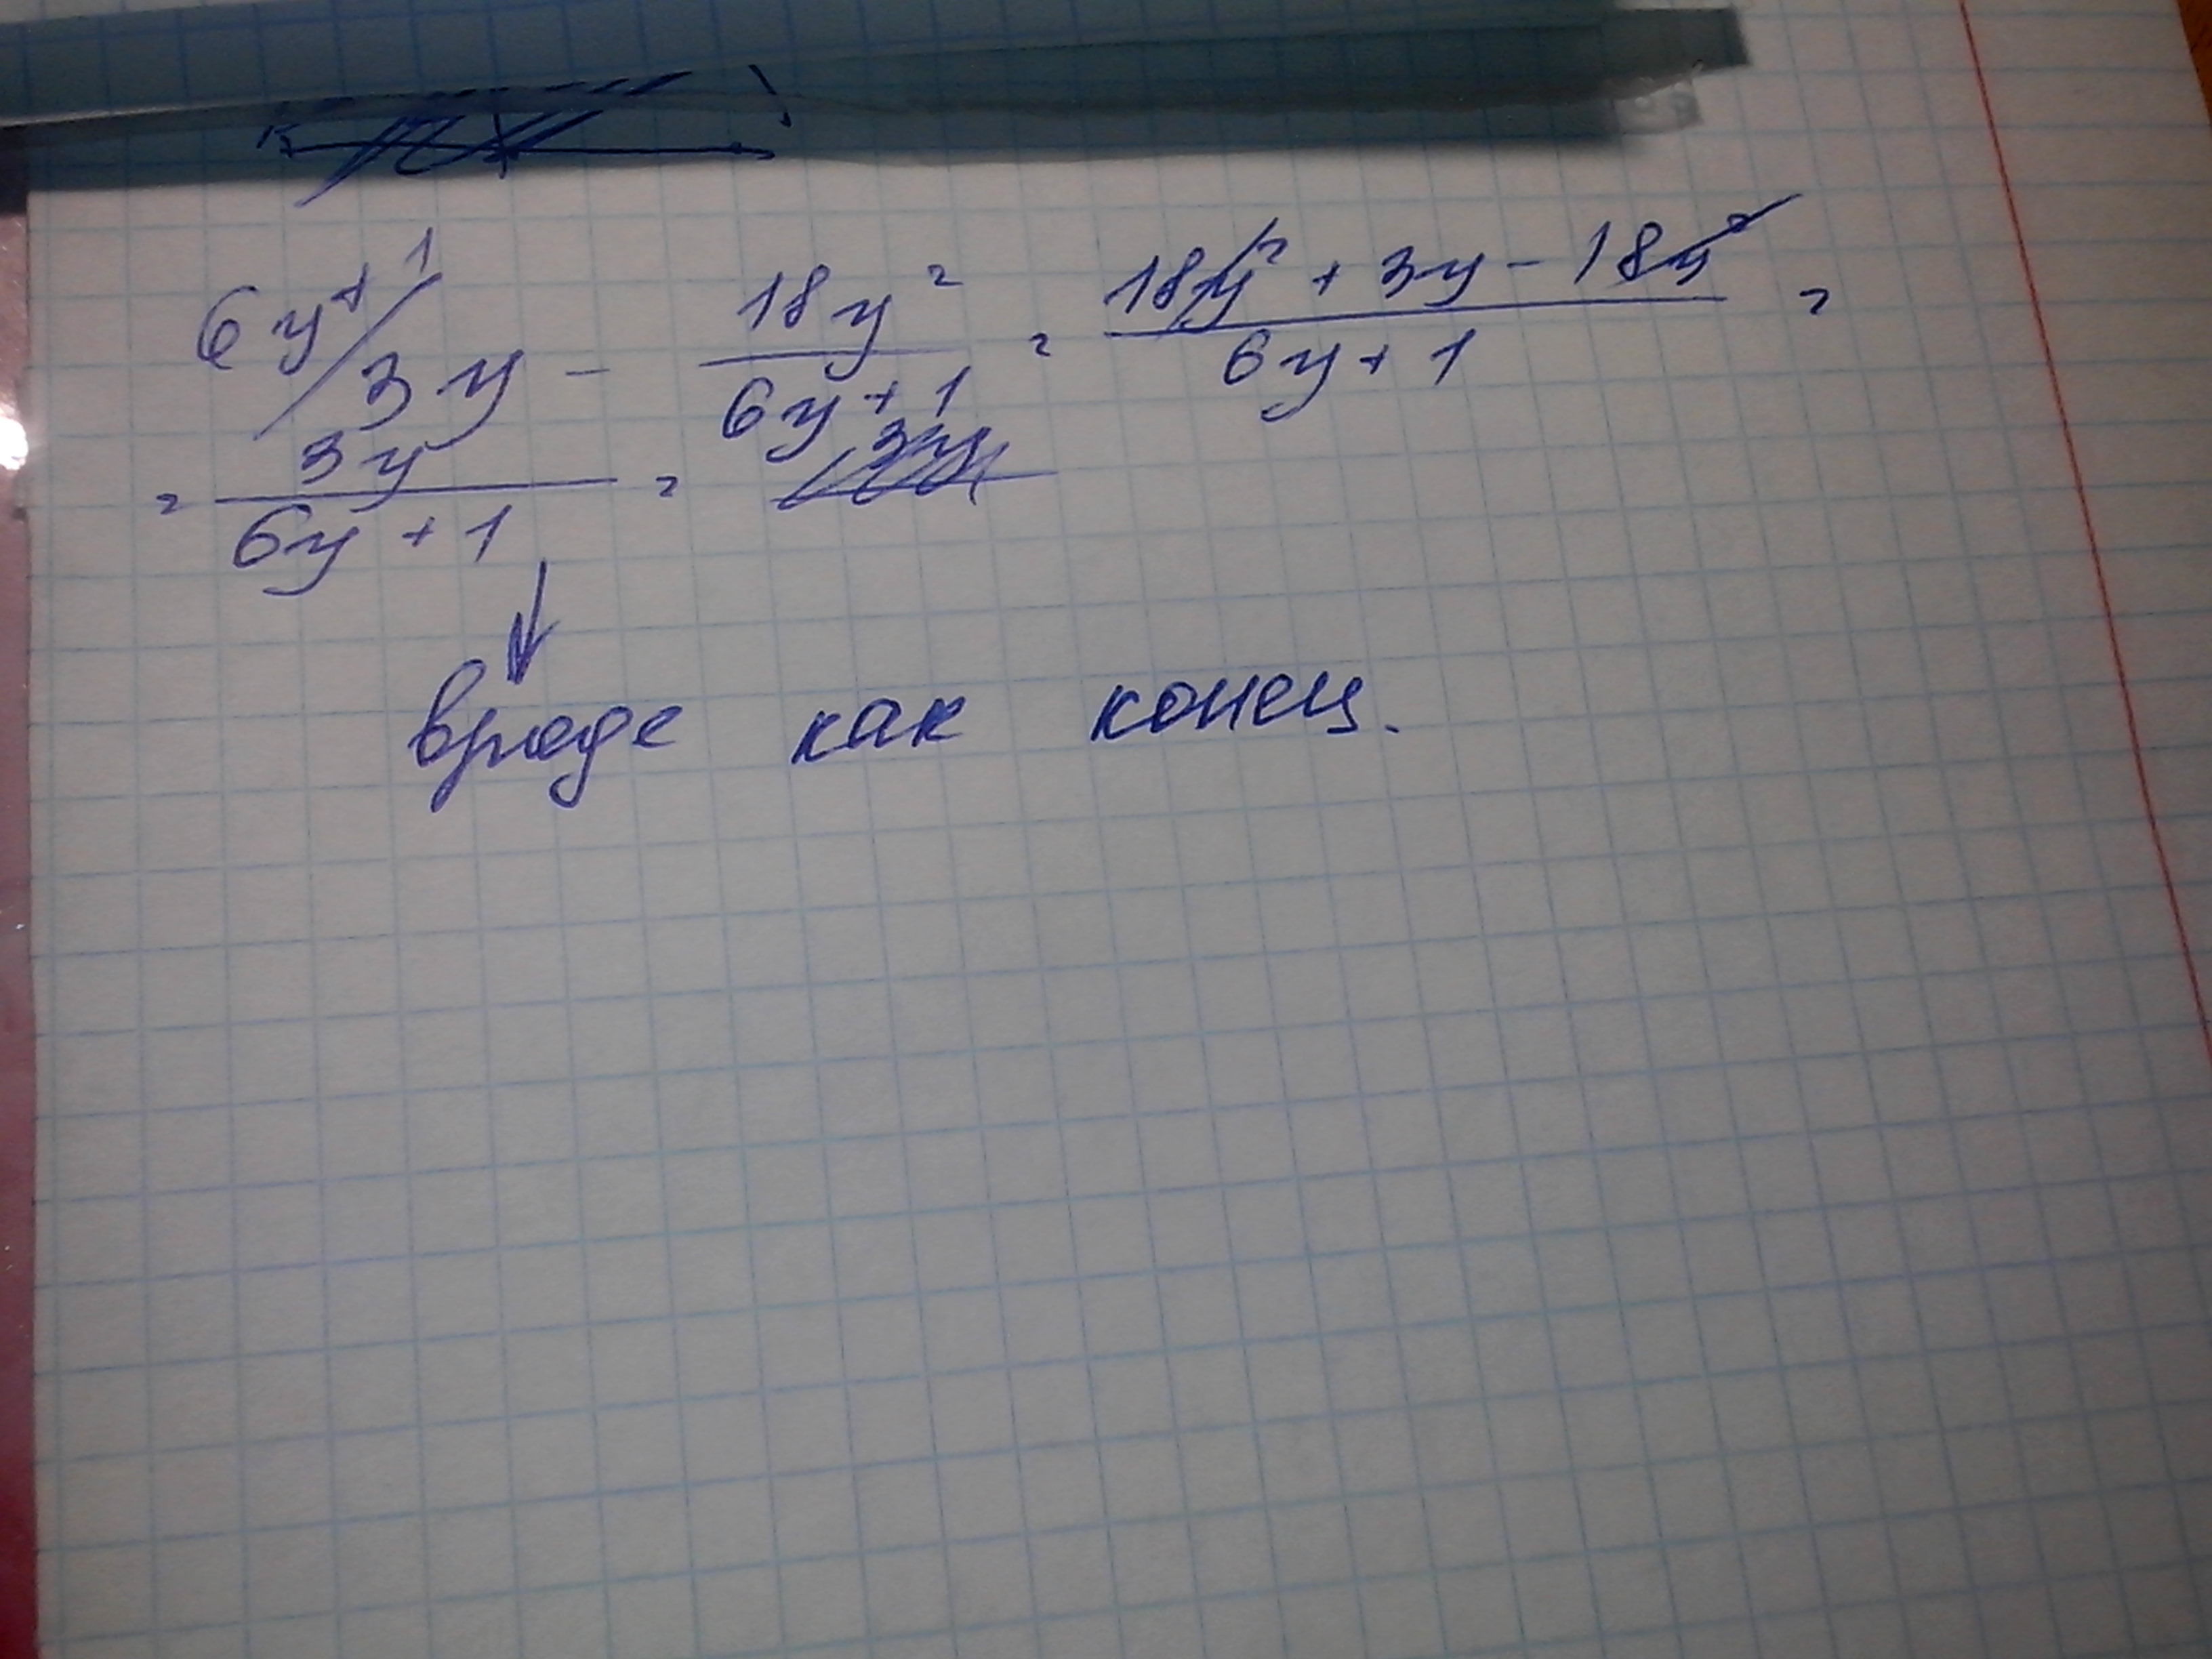 6y+1/3y - 18y²/6y+1 = 18y² + 3y - 18y²/6y+1 =
= 3y/6y+1 =
вроде как конец.